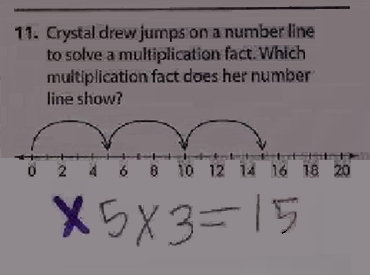 11. Crystal drew jumps on a number line
to solve a multiplication fact. Which
multiplication fact does her number
line show?
0 2 4 6 8 10 12 14 16 18 20
X 5x3=15